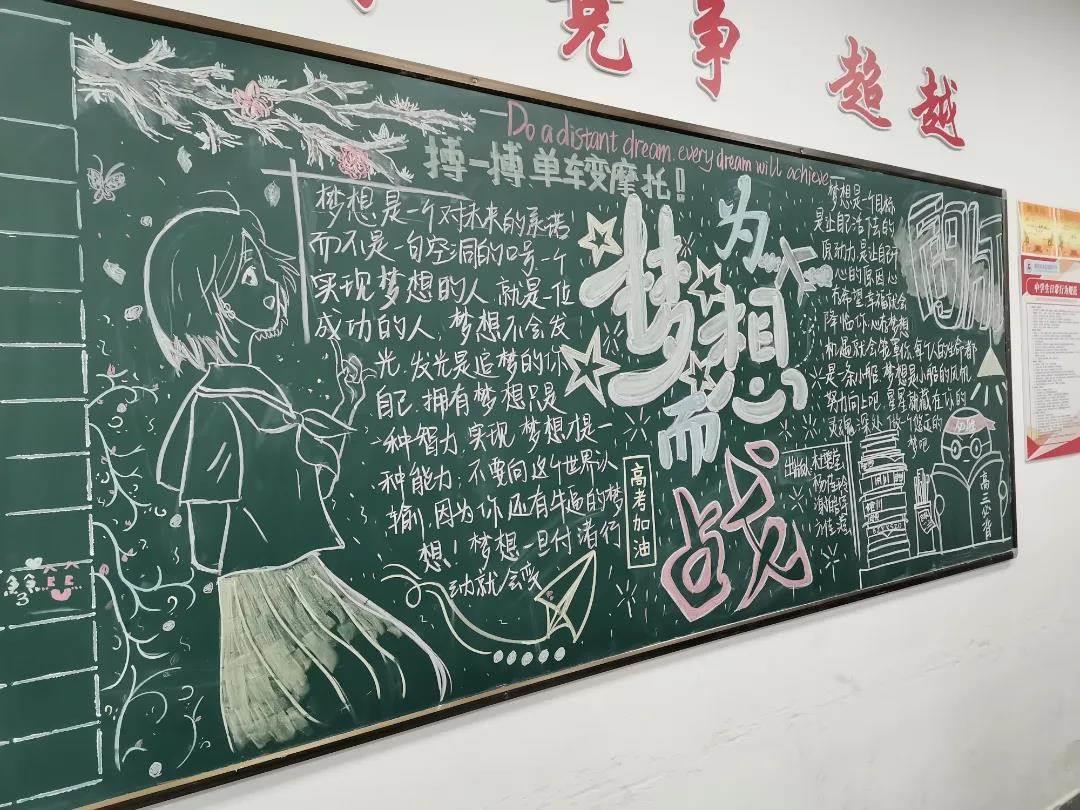 竞争 超越
Do a distant dream. every dream will achieve
搏一搏单车变摩托!
梦想是一个对未来的承诺
而不是一句空洞的口号一个
实现梦想的人就是一位
成功的人,梦想不会发
光,发光是追梦的你
自己,拥有梦想只是
一种智力,实现梦想才是一
种能力;不要向这个世界认
输,因为你还有牛逼的梦
想!梦想一旦付诸行
动就会变
高考加油
为
梦想
而
战
梦想是一个目标
是让自己活下去的
原动力,是让自己开
心的原因心
有希望,幸福就会
降临你,心有梦想
机遇就会笼罩你,每个人的生命都
是一条小船,梦想是小船的风帆
努力向上吧,星星就藏在你的
灵魂深处,做一个悠远的
梦吧
出版人:
必胜
高三必背
中学生日常行为规范